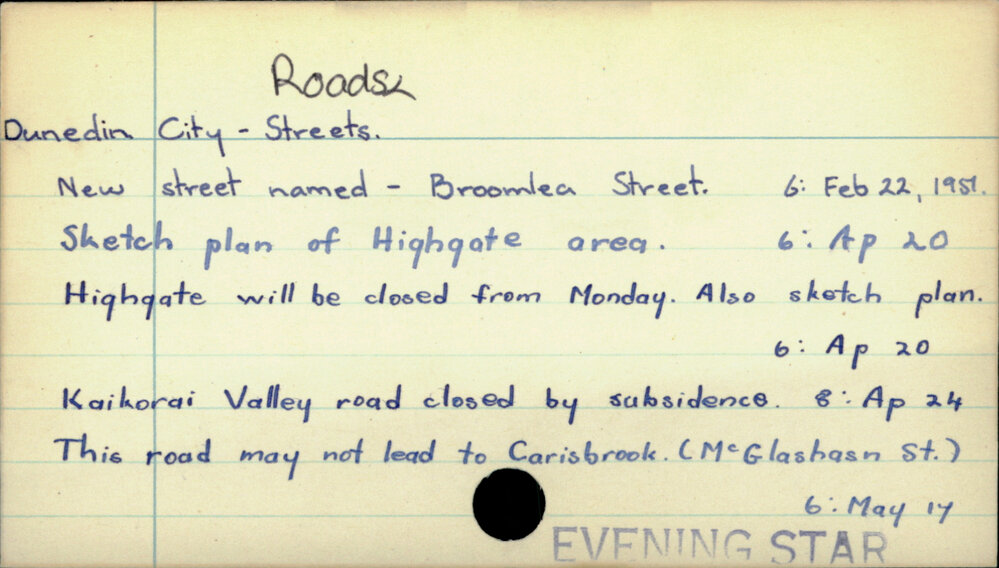 Roads
Dunedin City - Streets.
New street named - Broomlea Street. 6: Feb 22, 1951.
Sketch plan of Highgate area. 6: Ap 20
Highgate will be closed from Monday. Also sketch plan.
6: Ap 20
Kaikorai Valley road closed by subsidence. 8: Ap 24
This road may not lead to Carisbrook. (McGlashasn St.)
6: May 17
EVENING STAR